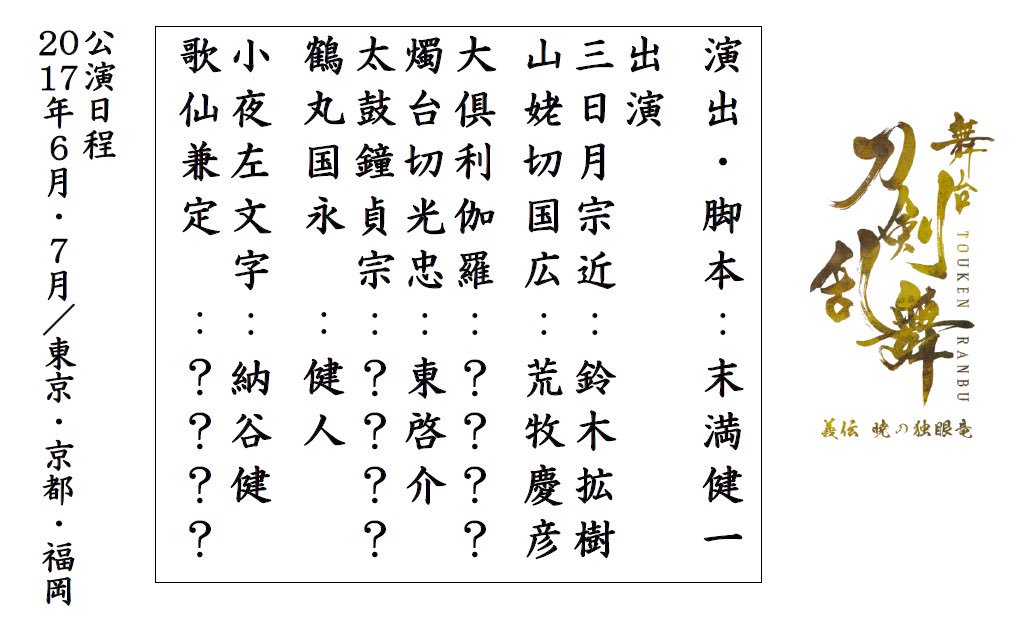 舞台
刀剣乱舞
TOUKEN RANBU
義伝 暁の独眼竜
演出・脚本：末満健一
出演
三日月宗近：鈴木拡樹
山姥切国広：荒牧慶彦
大倶利伽羅：？？？？
燭台切光忠：東啓介
太鼓鐘貞宗：？？？？
鶴丸国永：健人
小夜左文字：納谷健
歌仙兼定：？？？？
公演日程
2017年6月・7月／東京・京都・福岡